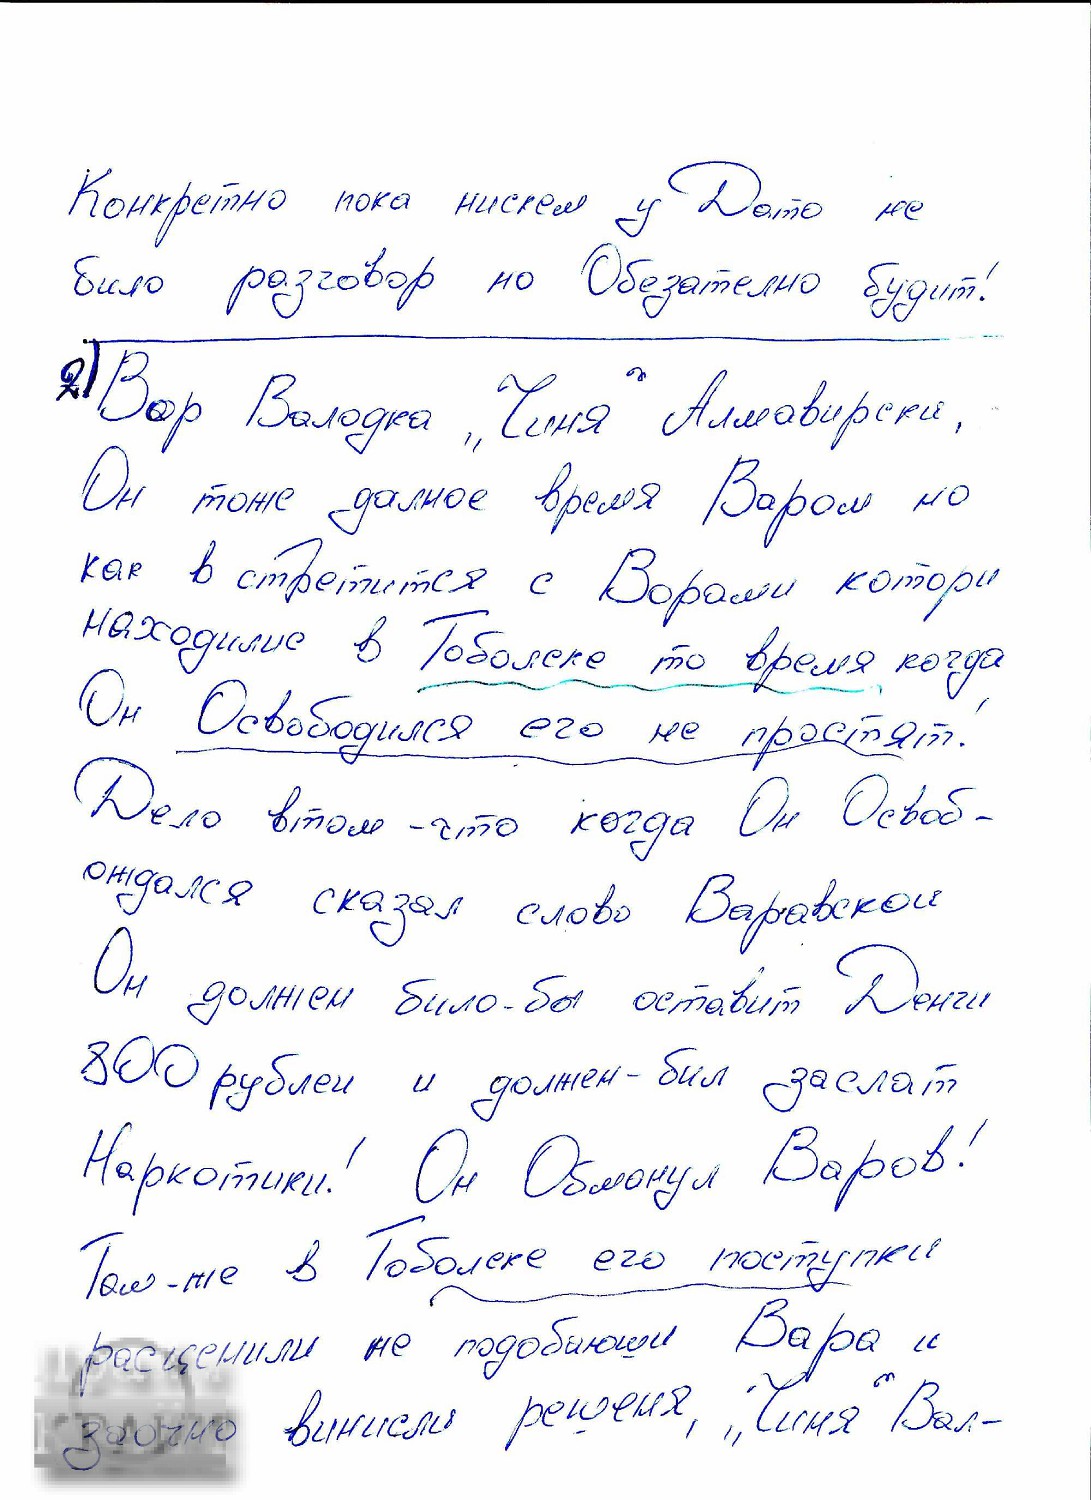 Конкретно пока нискем у Дато не
било разговор но Обезателно будит!
2) Вор Валодка „Чиня“ Алмавирски,
Он тоже далное время Варом но
как в стретится с Ворами котори
находилис в Тоболске то время когда
Он Освободился его не простят!
Дело втом-что когда Он Освоб-
ождался сказал слово Варавскои
Он должен било-бы оставит Денги
800 рублеи и должен-бил заслат
Наркотики! Он Обманул Варов!
Там-же в Тоболске его поступки
расценили не подобающи Вара и
заочно винисли решеня, „Чиня“ Вал-